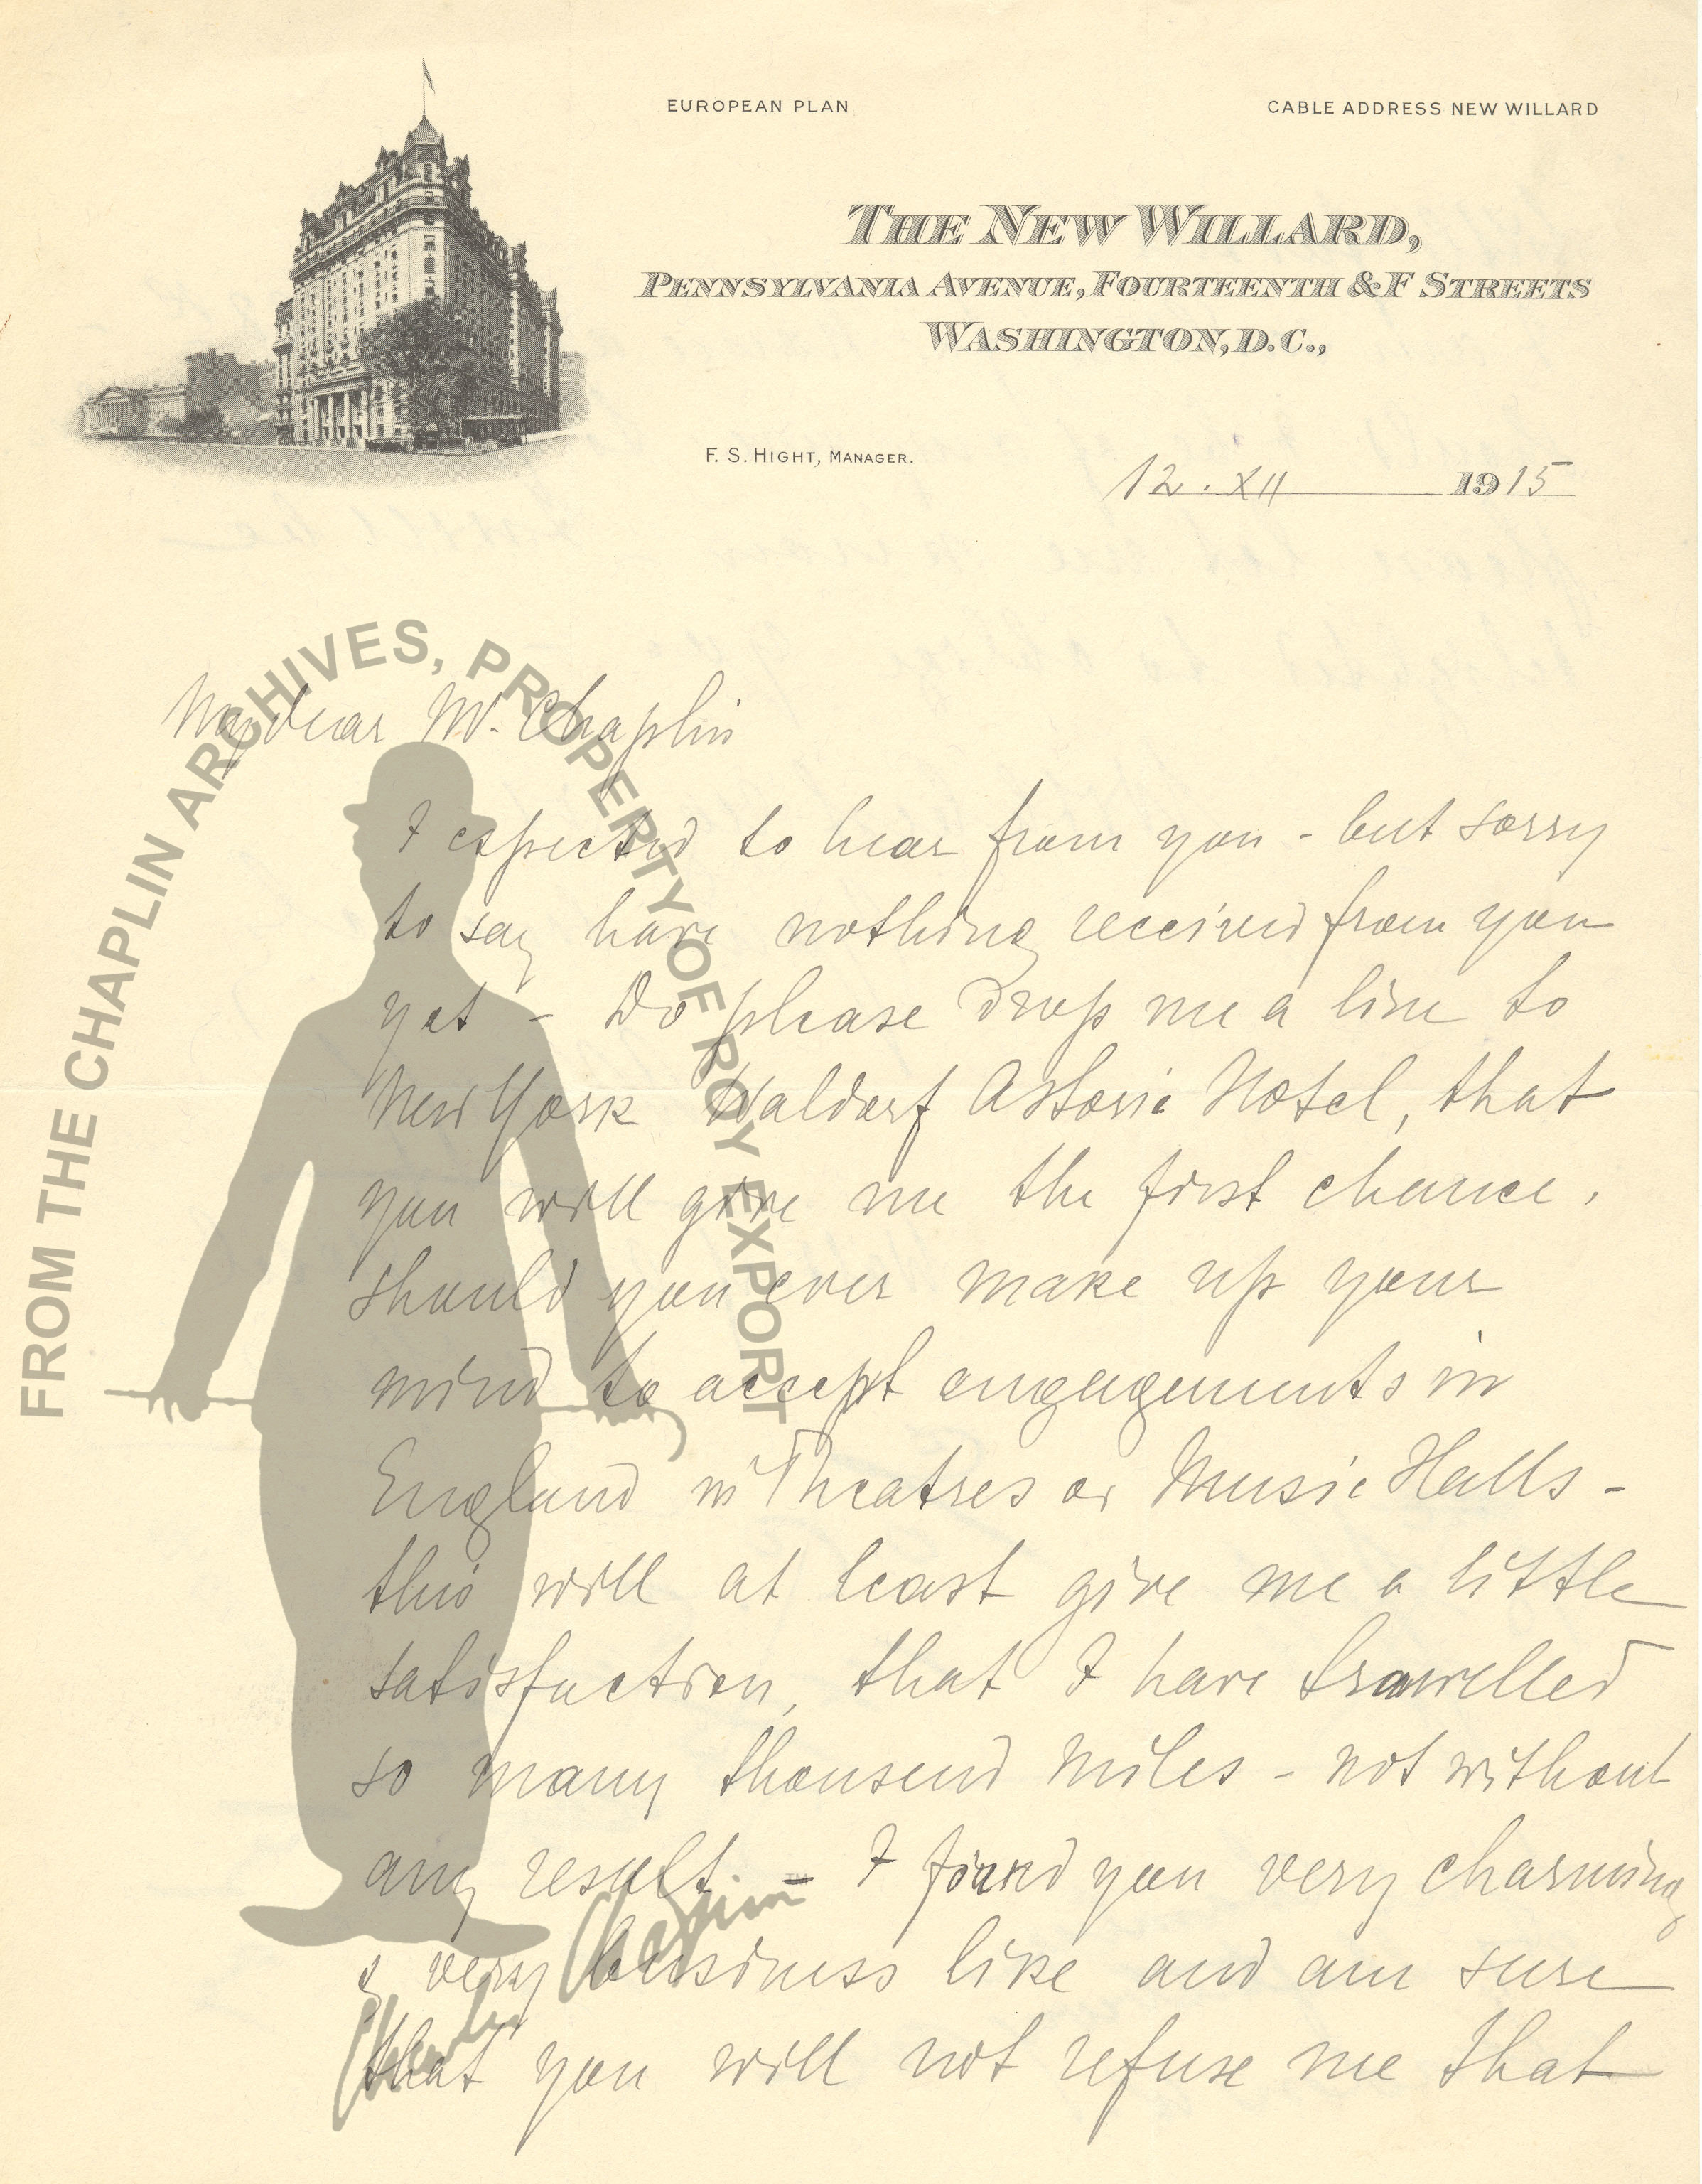 EUROPEAN PLAN
CABLE ADDRESS NEW WILLARD
THE NEW WILLARD,
PENNSYLVANIA AVENUE, FOURTEENTH & F STREETS
WASHINGTON, D.C.,
F. S. HIGHT, MANAGER.
12. XII 1915
FROM THE CHAPLIN ARCHIVES, PROPERTY OF ROY EXPORT
My dear Mr. Chaplin
I expected to hear from you - but sorry
to say have nothing received from you
yet - Do please drop me a line to
New York Waldorf Astoria Hotel, that
you will give me the first chance,
should you ever make up your
mind to accept engagements in
England in Theatres or Music Halls -
this will at least give me a little
satisfaction, that I have trawelled
so many thousend miles - not without
any result - I found you very charming
& very bussiness like and am sure
that you will not refuse me that
Charles Chaplin
TM